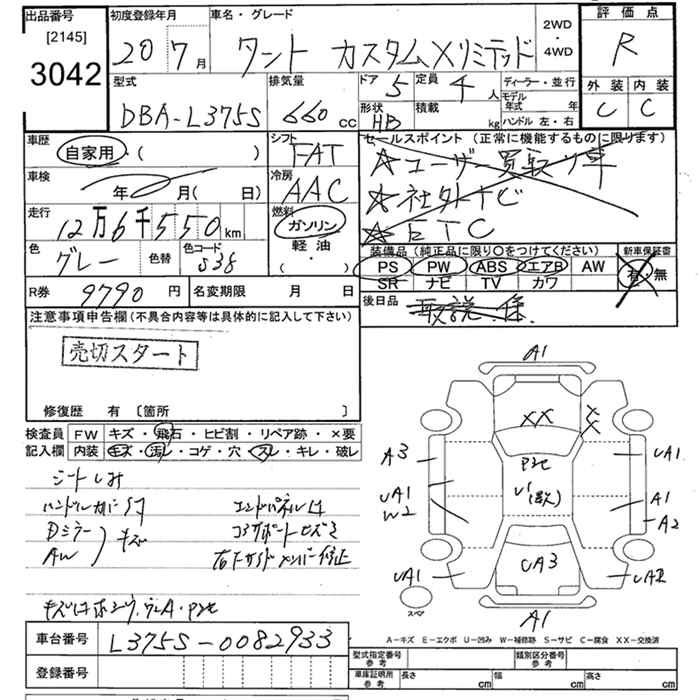 出品番号 初度登録年月 車名・グレード 2WD・4WD 評価点
[2145]
3042
20 7月 タント カスタムXリミテッド R
型式 排気量 ドア 5 定員 4人 ディーラー・並行 外装 内装
DBA-L375S 660cc 形状 HB 積載 kg モデル年式 年 ハンドル 左・右 C C
車歴 シフト セールスポイント (正常に機能するものに限ります)
自家用・( ) FAT ☆ユーザー買取ツ車
車検 年 月(日) 冷房 AAC ☆社外ナビ
走行 燃料 ☆ETC
12万6千550km ガソリン・軽油・( )
色 グレー 色替 色コード S38
装備品 (純正品に限り○をつけてください) 新車保証書
PS PW ABS エアB AW 有・無
SR ナビ TV カワ
R券 9790円 名変期限 月 日 後日品 取説 様
注意事項申告欄(不具合内容等は具体的に記入して下さい)
売切スタート
修復歴 有 〔箇所 〕
検査員 FW キズ・飛石・ヒビ割・リペア跡・×要
記入欄 内装 キズ・汚レ・コゲ・穴・スレ・キレ・破レ
シートしみ
ハンドルカバーS了
Dミラー
AW
キズ
エンドパネルU
コアサポートヒズミ
右Fサイドメンバー修正
A1
XX
X
X
A3
Pヒ
UA1
UA1
W2
A1
A2
UA3
UA1
UA2
スペア
A1
A-キズ E-エクボ U-凹み W-補修跡 S-サビ C-腐食 XX-交換済
車台番号 L375S-0082933
登録番号
型式指定番号 参考 類別区分番号 参考
車庫証明用 参考 長さ cm 幅 cm 高さ cm